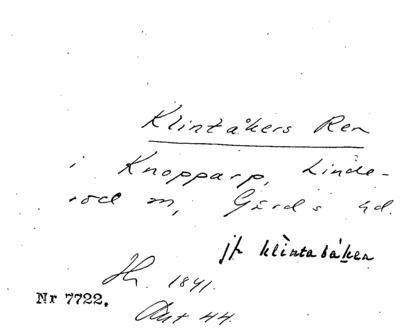 Klintåkers Ren
i Knopparp, Linde-
röd sn, Gärds hd.
jfr klintabåken
Hr. 1841.
Nr 7722.
Akt 44.